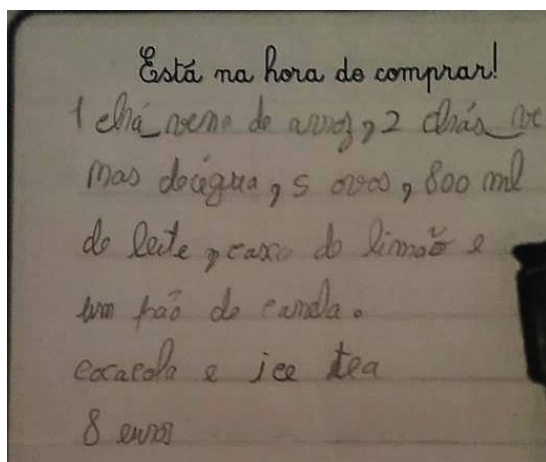 Está na hora de comprar!
1 chá_vena de arroz, 2 chás_ve
mas de água, 5 ovos, 800 ml
de leite, casca do limão e
um páo de canela.
cocacola e ice tea
8 euros